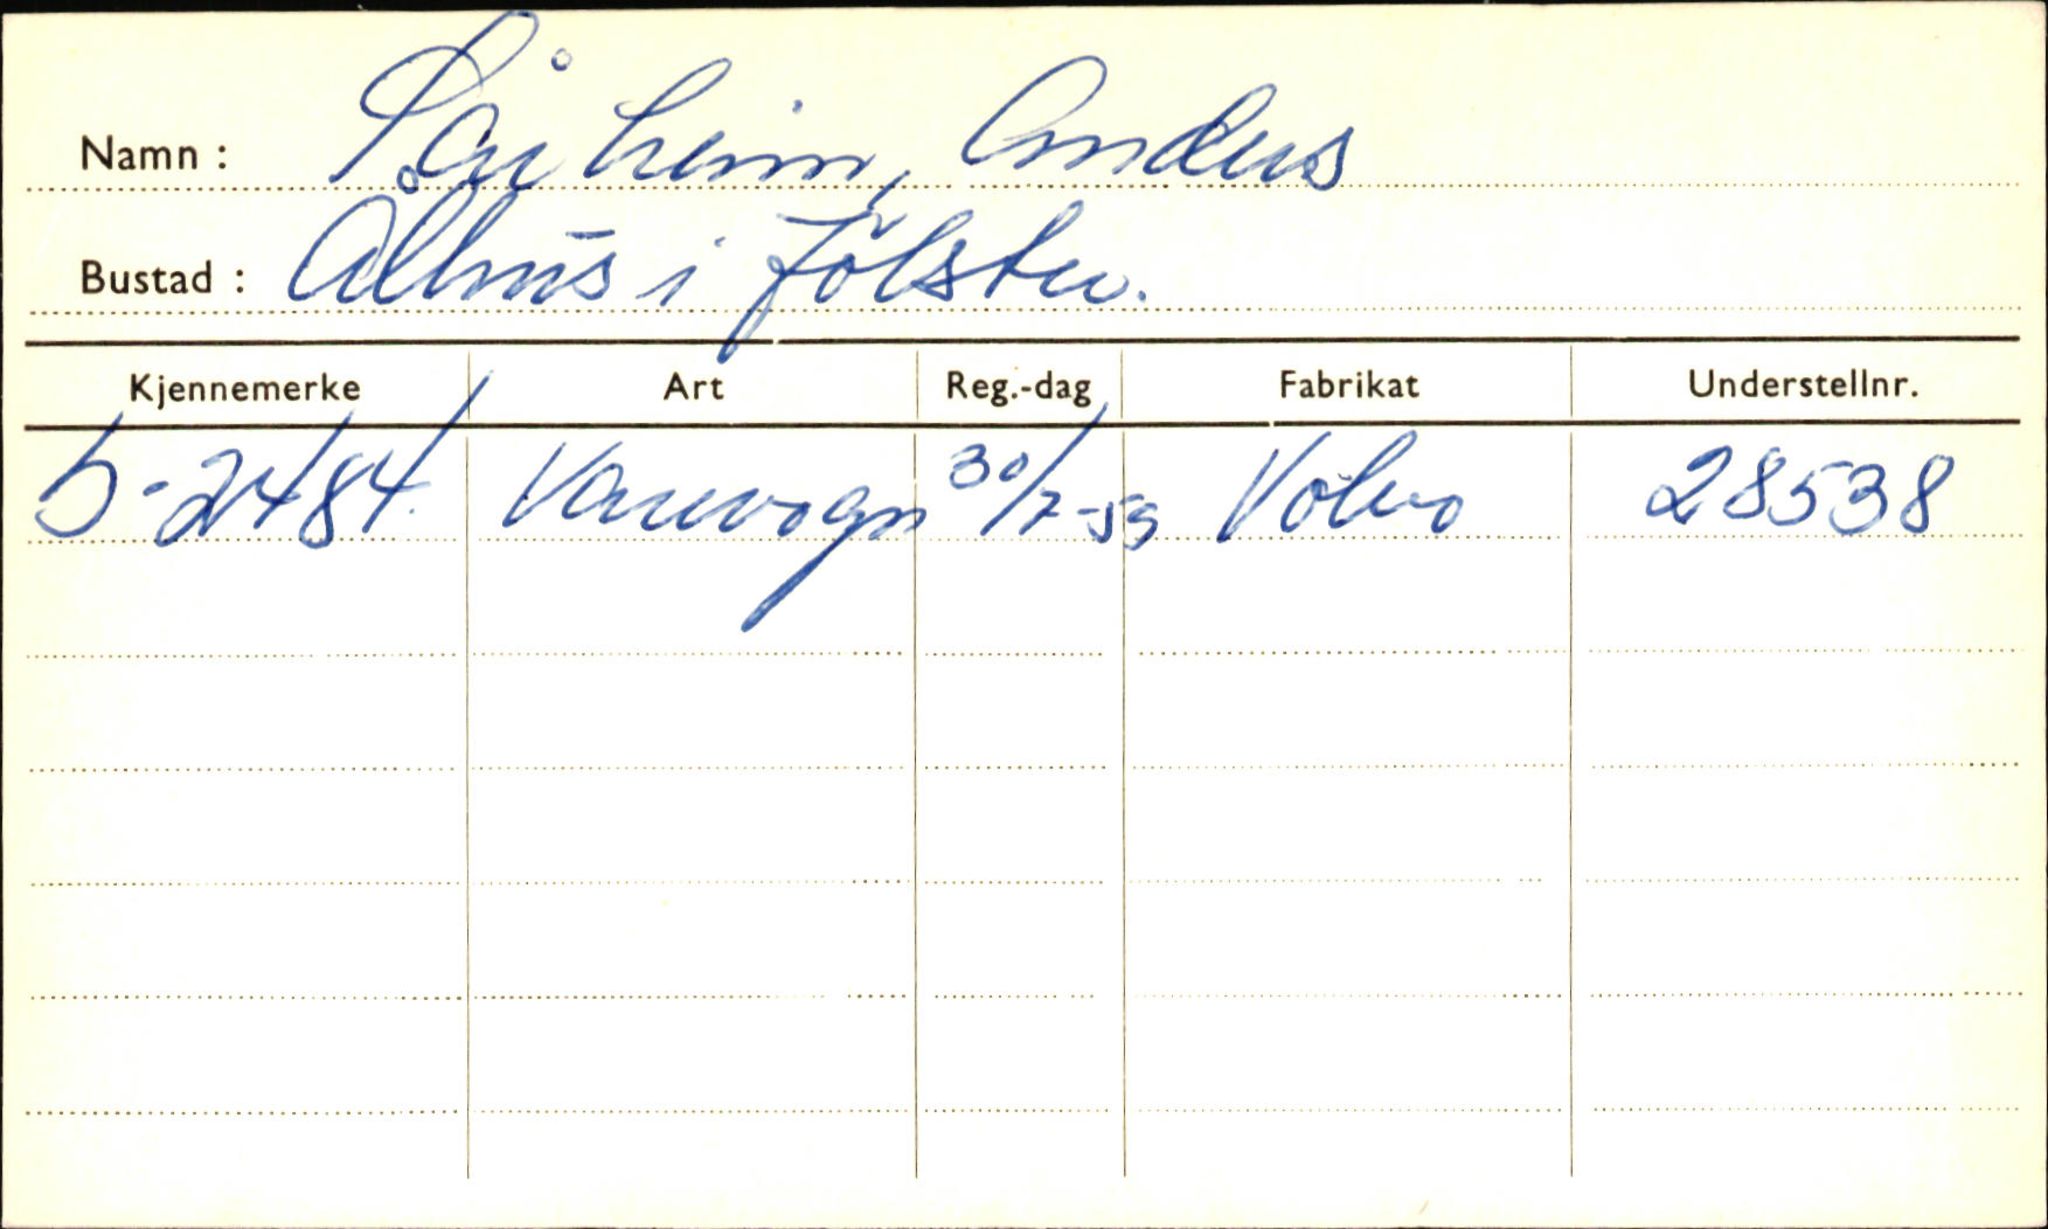 Namn : Såheim, Anders
Bustad : Ålhus i Jölster.
Kjennemerke Art Reg.-dag Fabrikat Understellnr.
S-2484. Varevogn 30/7-59 Volvo 28538